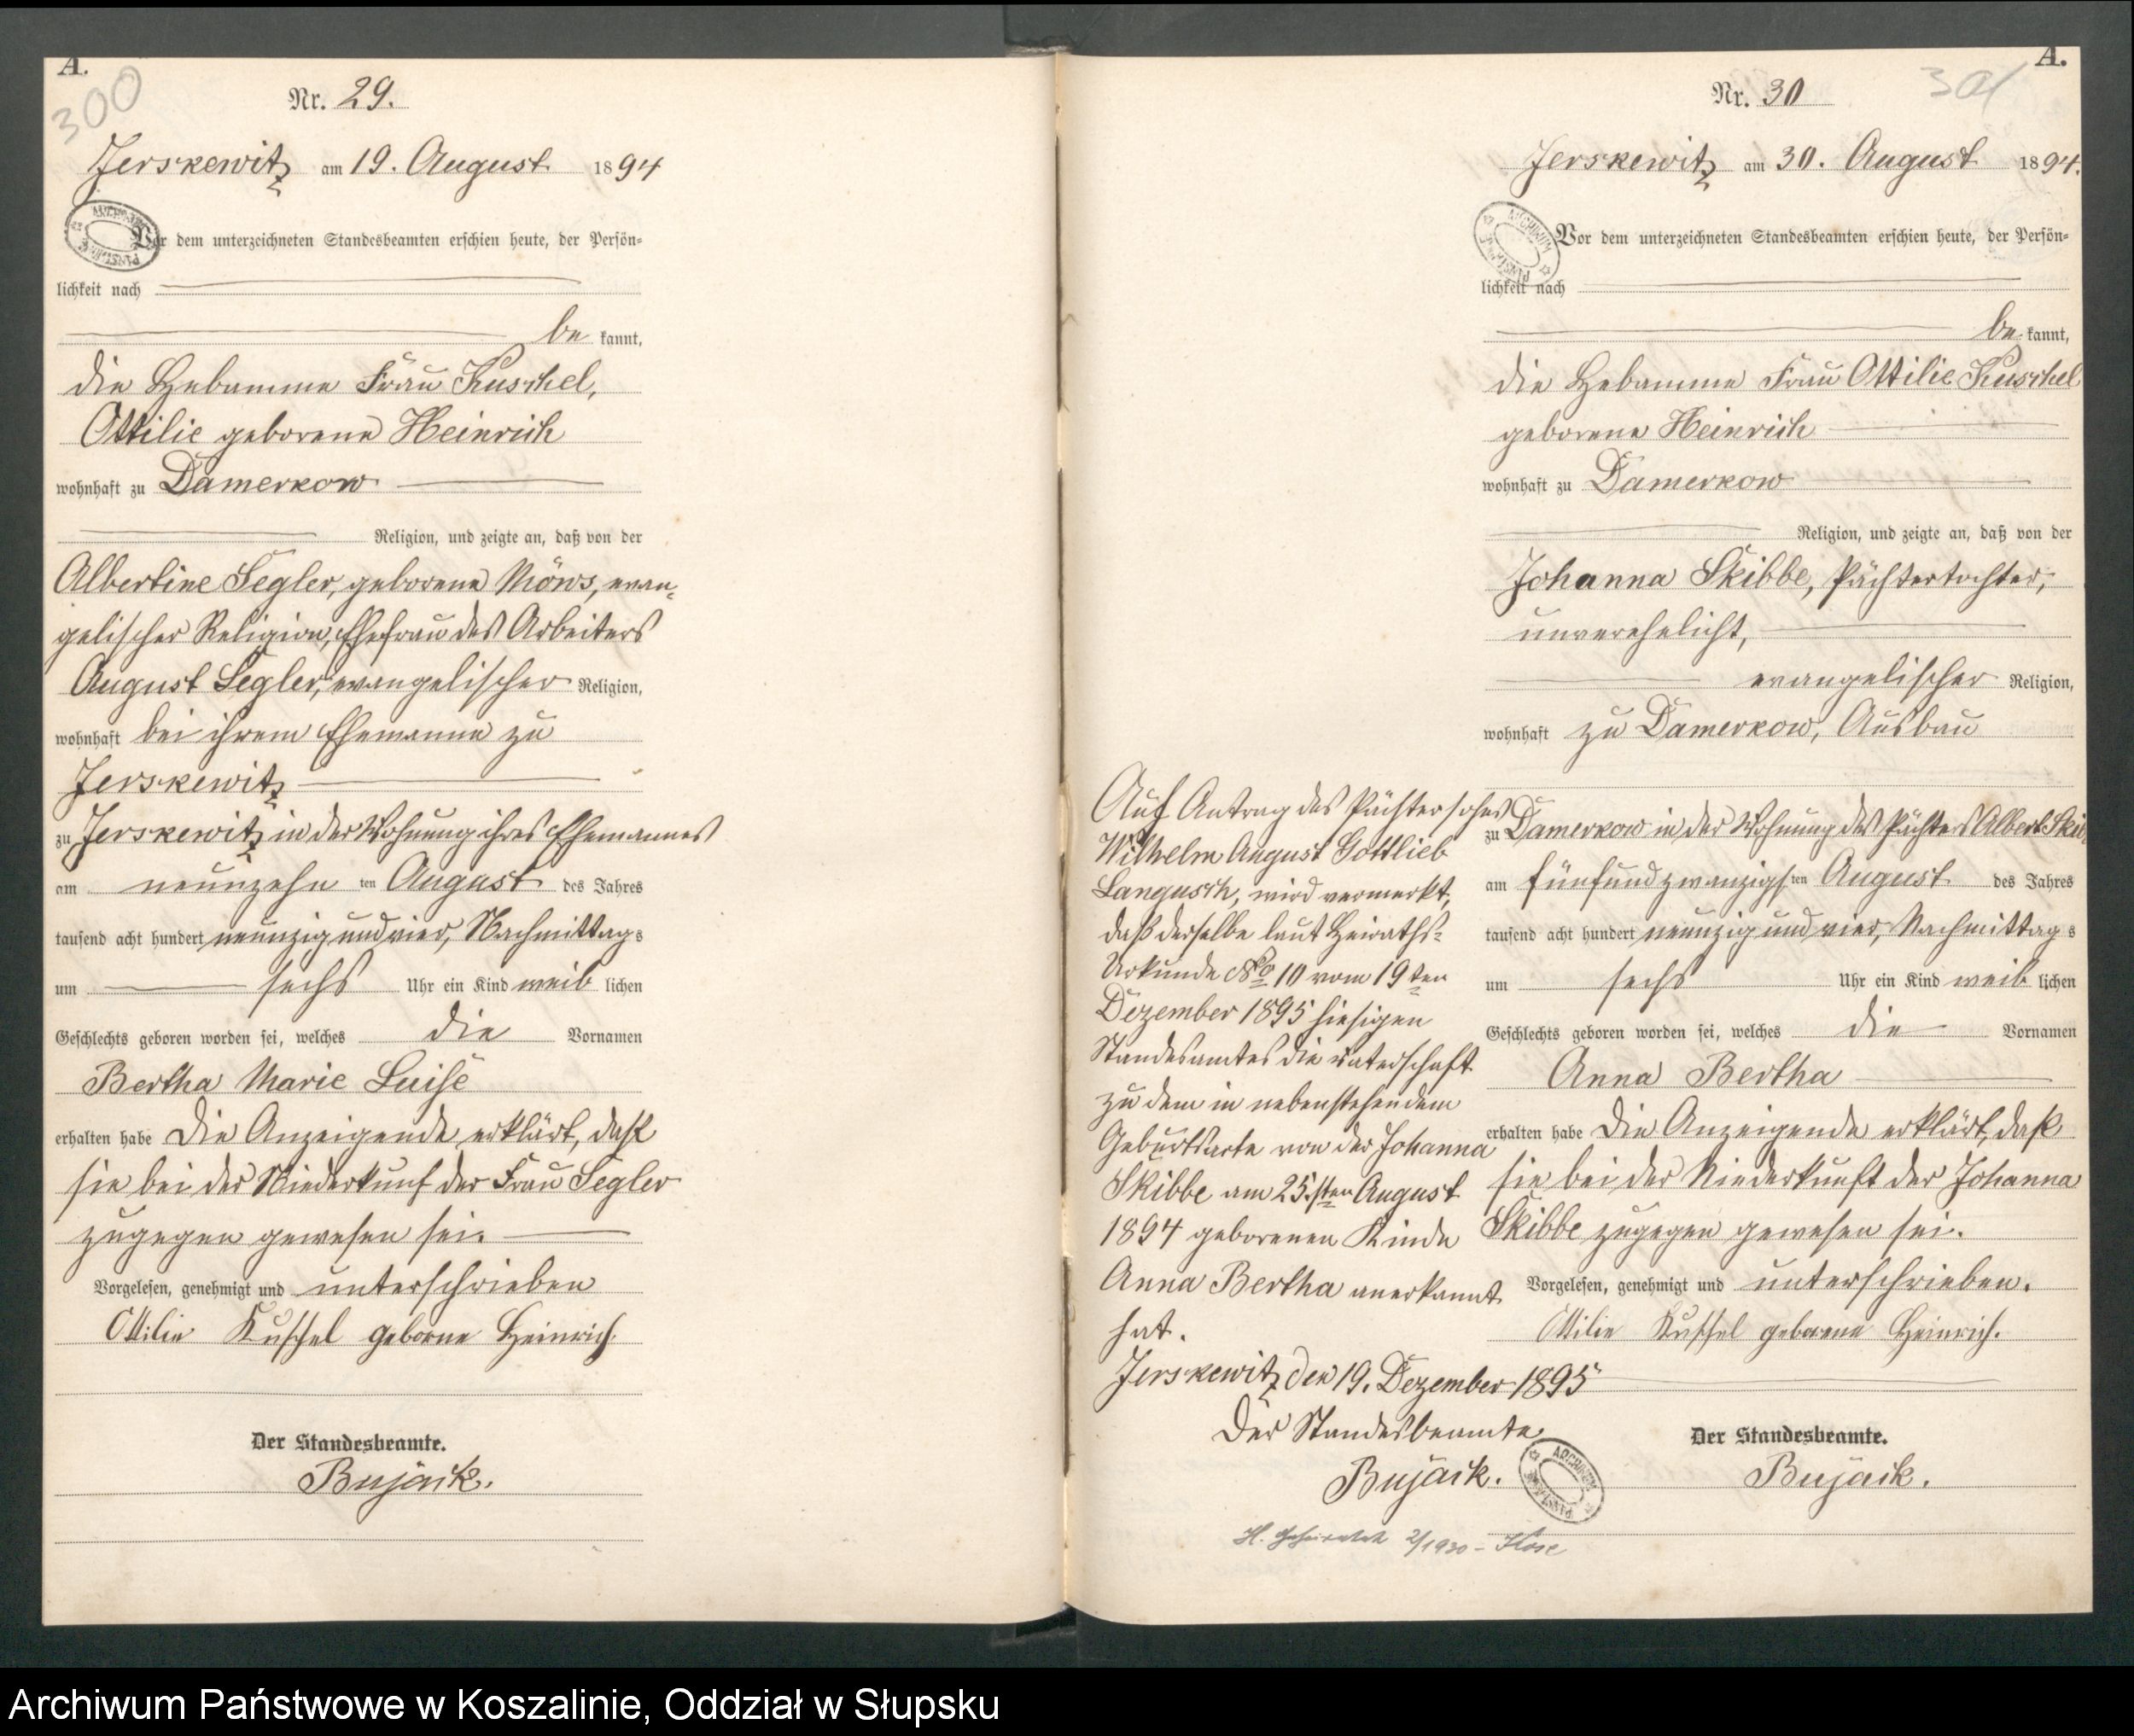 A.
300
Nr. 29.
Jerskewitz am 19. August 1894
Vor dem unterzeichneten Standesbeamten erschien heute, der Persön=
lichkeit nach
be kannt,
die Hebamme Frau Kuschel,
Ottilie geborene Heinrich
wohnhaft zu Damerkow
Religion, und zeigte an, daß von der
Albertine Segler, geborene Möws, evan-
gelischer Religion, Ehefrau des Arbeiters
August Segler, evangelischer Religion,
wohnhaft bei ihrem Ehemanne zu
Jerskewitz
zu Jerskewitz in der Wohnung ihres Ehemannes
am neunzehn ten August des Jahres
tausend acht hundert neunzig und vier, Nachmittag s
um sechs Uhr ein Kind weib lichen
Geschlechts geboren worden sei, welches die Vornamen
Bertha Marie Luise
erhalten habe Die Anzeigende erklärt, daß
sie bei der Niederkunf der Frau Segler
zugegen gewesen sei.
Vorgelesen, genehmigt und unterschrieben
Ottilie Kuschel geborne Heinrich.
Der Standesbeamte.
Bujack.
A.
301
Nr. 30
Jerskewitz am 30. August 1894.
Vor dem unterzeichneten Standesbeamten erschien heute, der Persön=
lichkeit nach
be kannt,
die Hebamme Frau Ottilie Kuschel
geborene Heinrich
wohnhaft zu Damerkow
Religion, und zeigte an, daß von der
Johanna Skibbe, Pächtertochter,
unverehelicht,
evangelischer Religion,
wohnhaft zu Damerkow, Ausbau
zu Damerkow in der Wohnung des Pächters Albert Skib
am fünfundzwanzigs ten August des Jahres
tausend acht hundert neunzig und vier, Nachmittag s
um sechs Uhr ein Kind weib lichen
Geschlechts geboren worden sei, welches die Vornamen
Anna Bertha
erhalten habe Die Anzeigende erklärt, daß
sie bei der Niederkunft der Johanna
Skibbe zugegen gewesen sei.
Vorgelesen, genehmigt und unterschrieben.
Ottilie Kuschel geborene Heinrich.
Der Standesbeamte.
Bujack.
Auf Antrag des Pächtersohes
Wilhelm August Gottlieb
Langusch, wird vermerkt,
daß derselbe laut Heiraths=
Urkunde No 10 vom 19ten
Dezember 1895 hiesigen
Standesamtes die Vaterschaft
zu dem in nebenstehendem
Geburtsacte von der Johanna
Skibbe am 25.sten August
1894 geborenen Kinde
Anna Bertha anerkannt
hat.
Jerskewitz den 19. Dezember 1895
Der Standesbeamte.
Bujack.
2/1930 -
Archiwum Państwowe w Koszalinie, Oddział w Słupsku